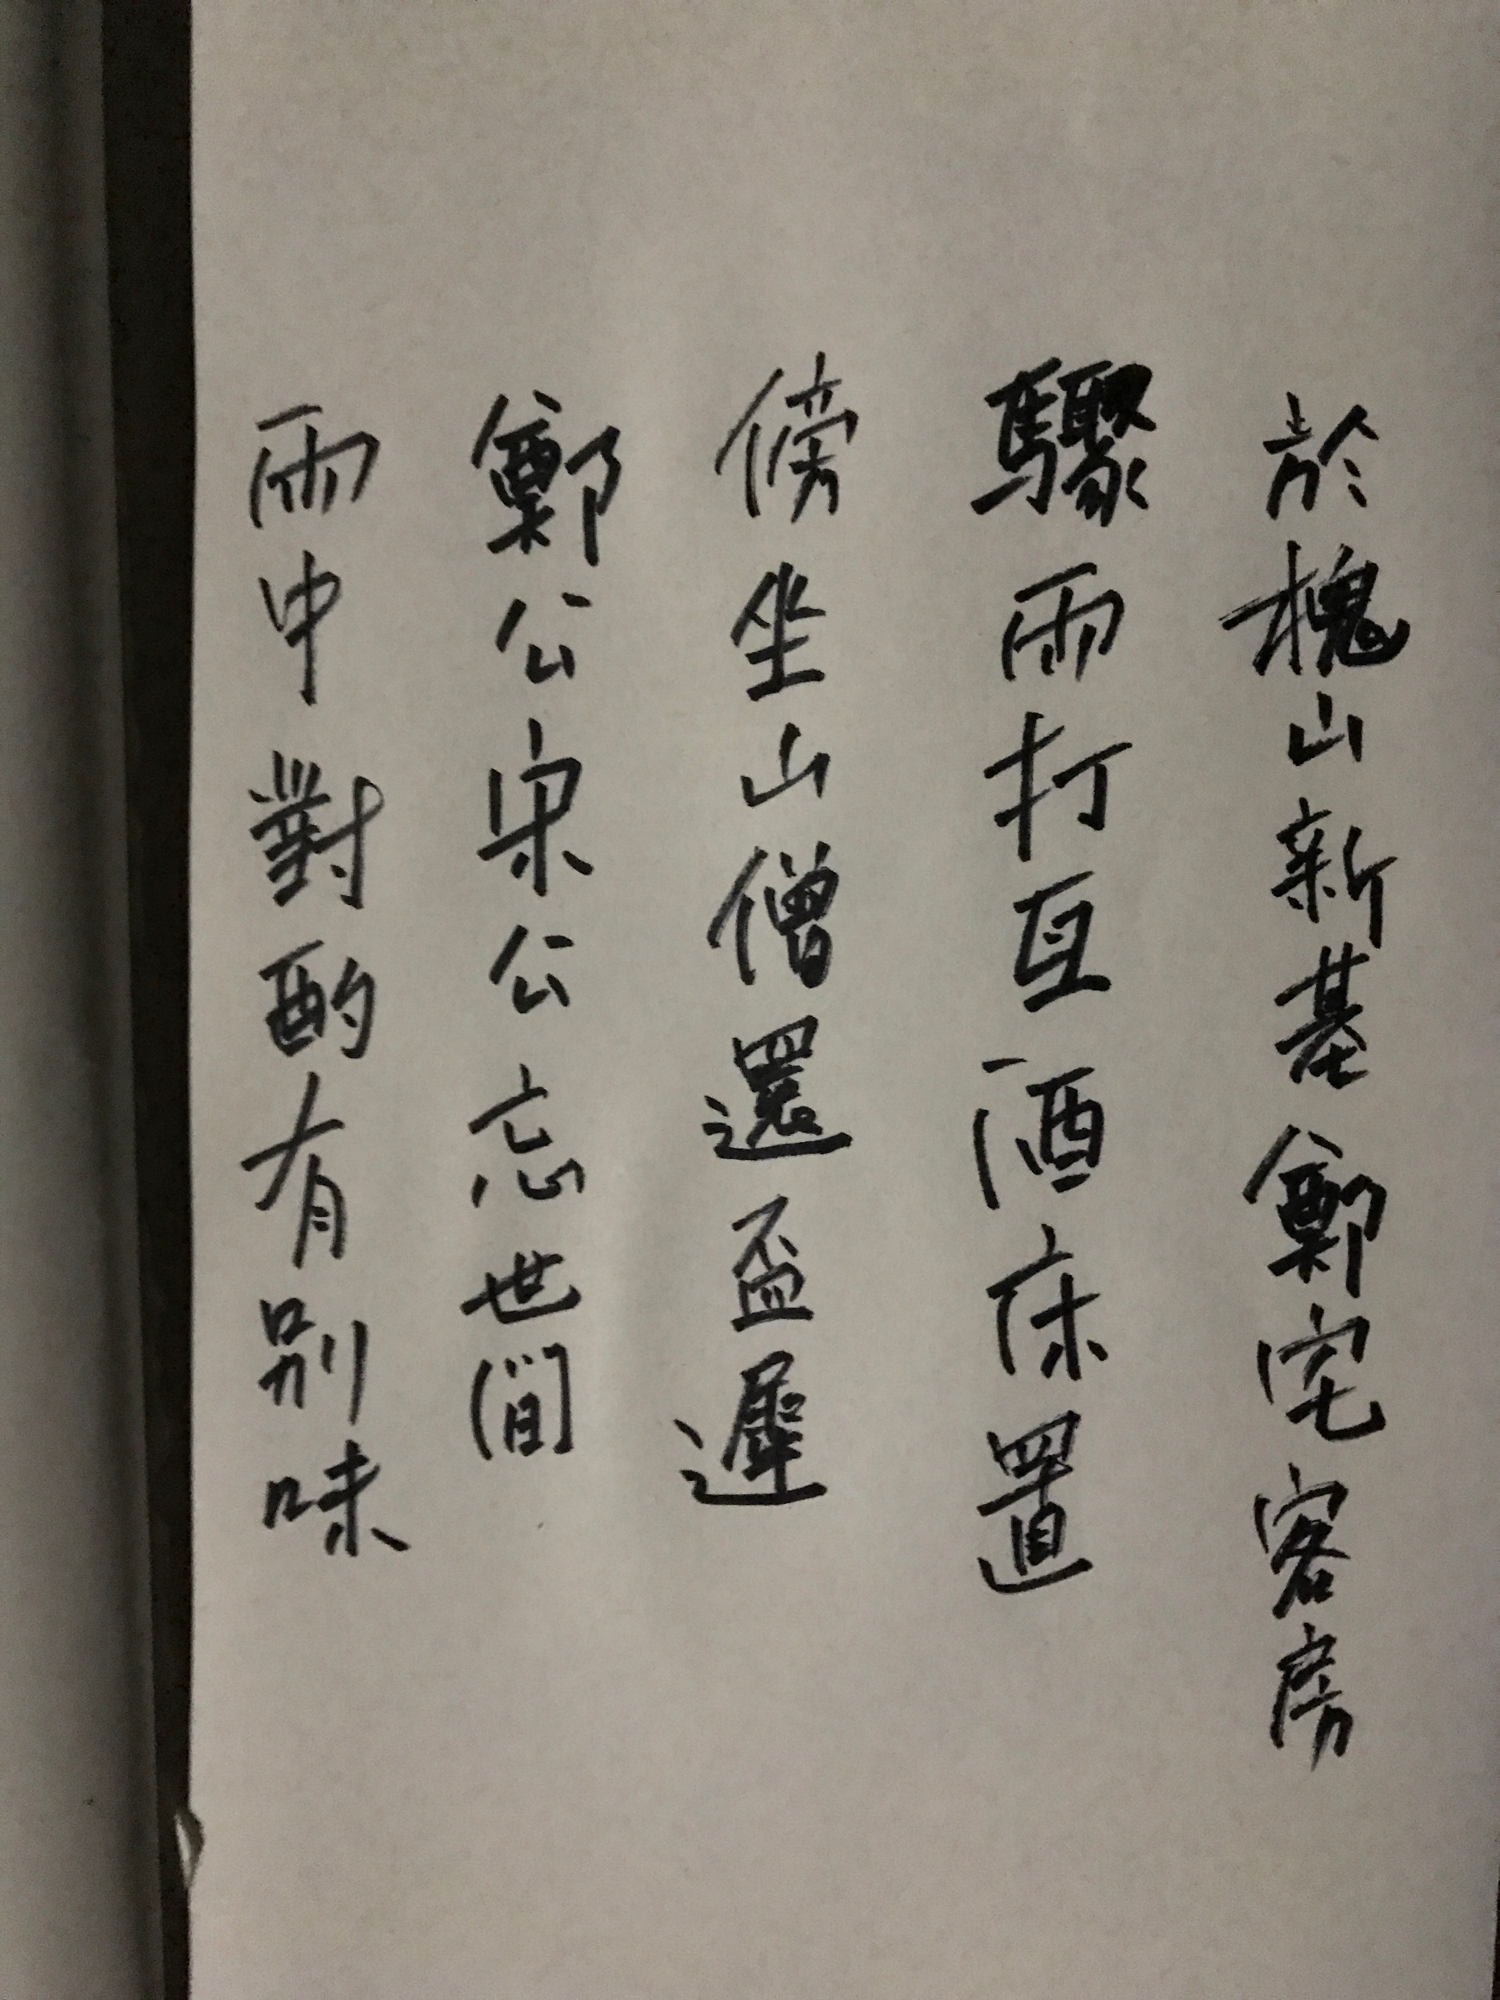 於槐山新基鄭宅客房
驟雨打亙酒床置
傍坐山僧還盃遲
鄭公宋公忘世間
雨中對酌有別味